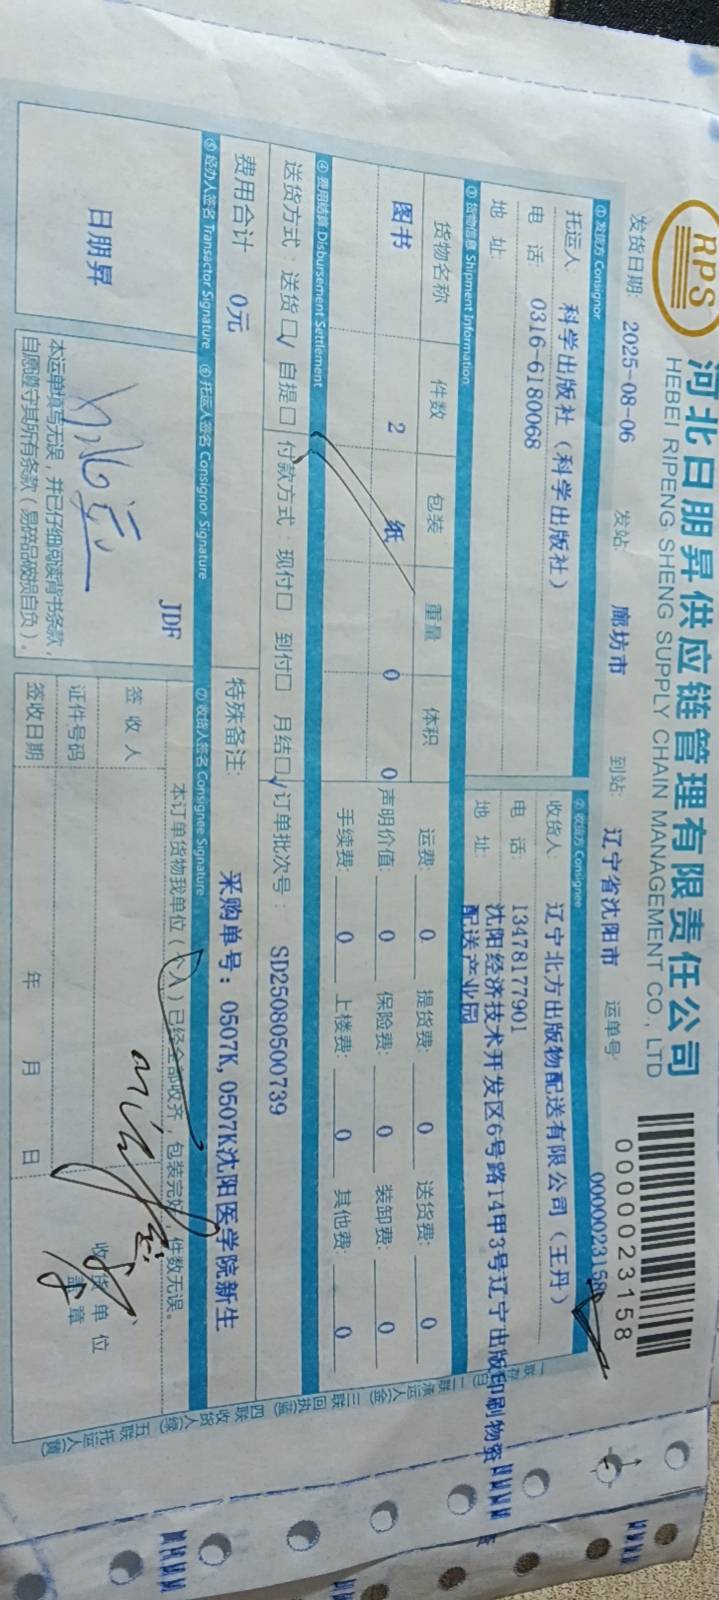 RPS
河北日朋昇供应链管理有限责任公司
HEBEI RIPENG SHENG SUPPLY CHAIN MANAGEMENT CO., LTD
0000023158
发货日期: 2025-08-06 发站: 廊坊市 到站: 辽宁省沈阳市 运单号: 0000023158
① 发货方 Consignor
托运人: 科学出版社（科学出版社）
电 话: 0316-6180068
地 址:
② 收货方 Consignee
收货人: 辽宁北方出版物配送有限公司（王丹）
电 话: 13478177901
地 址: 沈阳经济技术开发区6号路14甲3号辽宁出版印刷物资
配送产业园
③ 货物信息 Shipment Information
货物名称 件数 包装 重量 体积
图书 2 纸 0 0
运费: 0 提货费: 0 送货费: 0
声明价值: 0 保险费: 0 装卸费: 0
手续费: 0 上楼费: 0 其他费: 0
④ 费用结算 Disbursement Settlement
送货方式: 送货☑ 自提□ 付款方式: 现付□ 到付□ 月结☑ 订单批次号: SD25080500739
费用合计 0元
特殊备注: 采购单号: 0507K, 0507K沈阳医学院新生
⑤ 经办人签名 Transactor Signature
日朋昇
⑥ 托运人签名 Consignor Signature
JDF
本运单填写无误，并已仔细阅读背书条款，
自愿遵守其所有条款（易碎品破损自负）。
⑦ 收货人签名 Consignee Signature
本订单货物我单位（个人）已经全部收齐，包装完好，件数无误。
签 收 人
证件号码
签收日期 年 月 日
收货单位
盖 章
一联 存
二联 承运人
三联 回执(蓝)
四联 收货人(绿)
五联 托运人(黄)